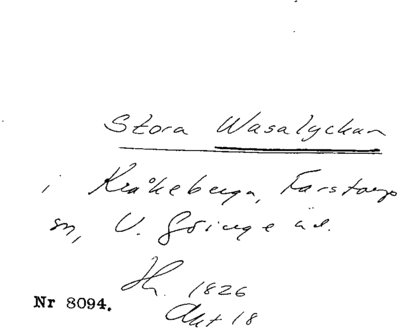 Stora Wasalyckan
i Kråkeberga, Färstorps
sn, V. Göinge hd.
Lh. 1826
Akt 18
Nr 8094.